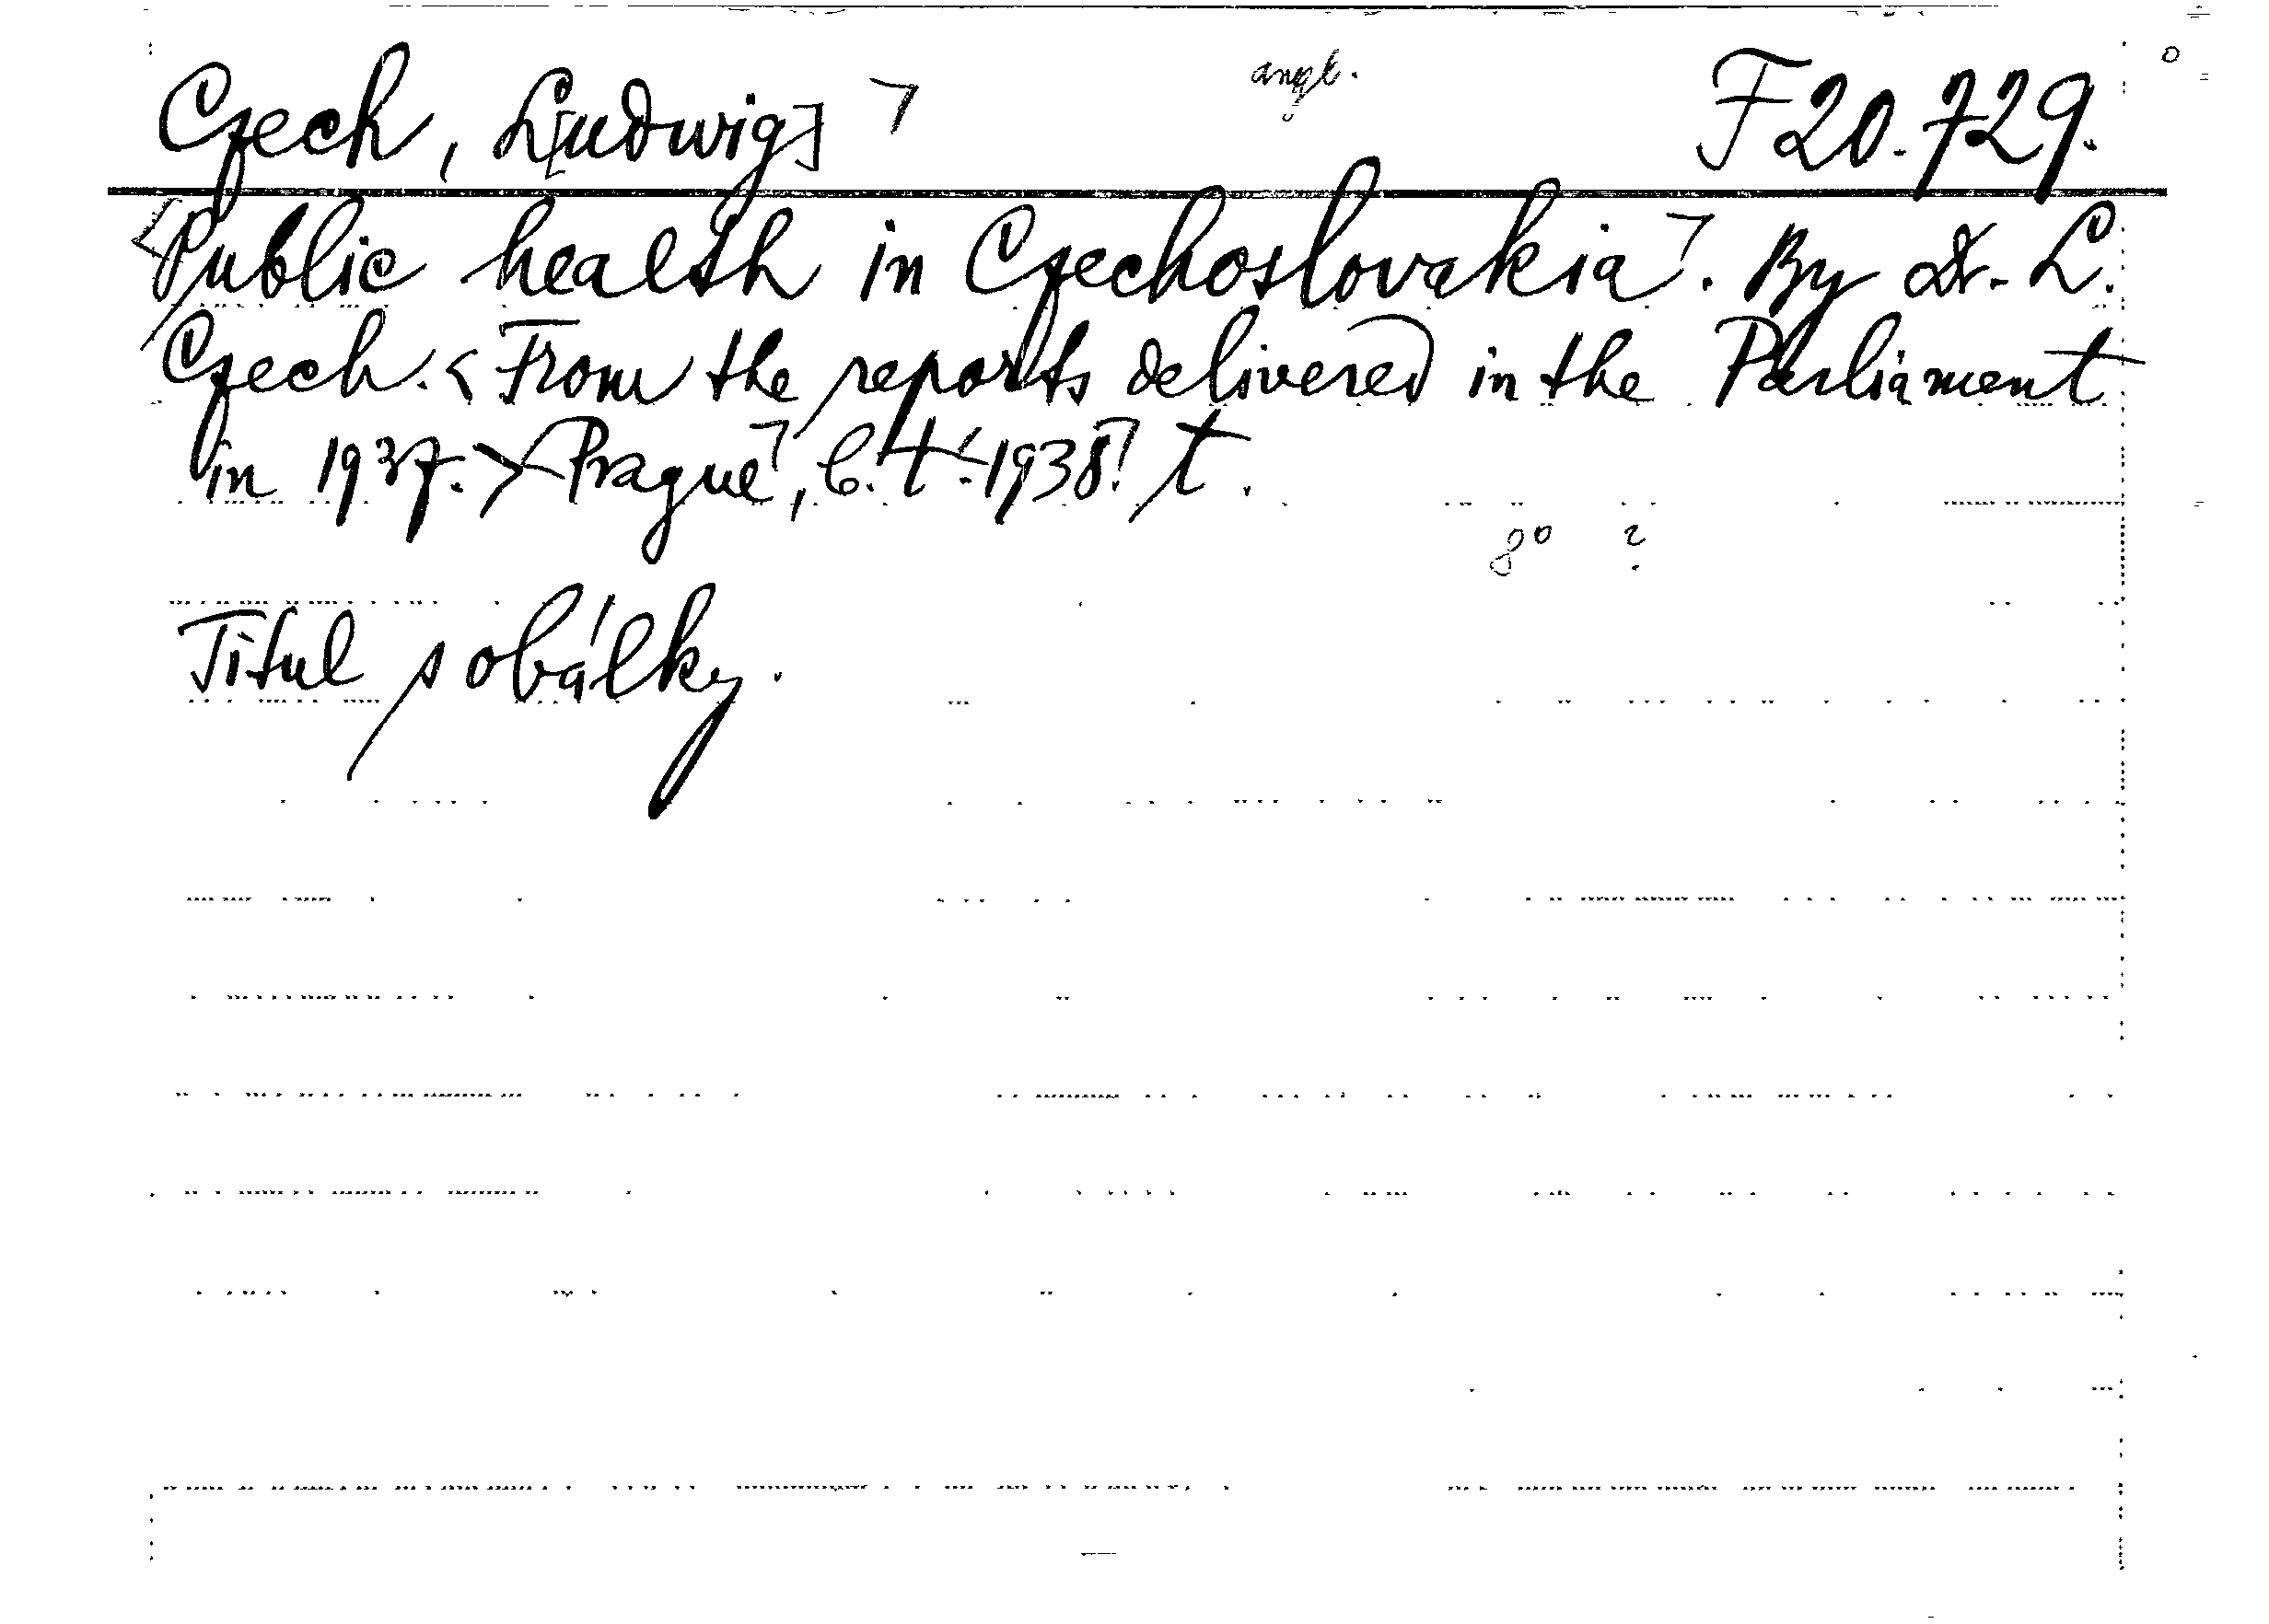 Czech, L[udwig] angl. F 20.729.
Public health in Czechoslovakia. By Dr. L.
Czech. < From the reports delivered in the Parliament
in 1937. > Prague, b. t. 1938. t.
8° ?
Titul s obálky.